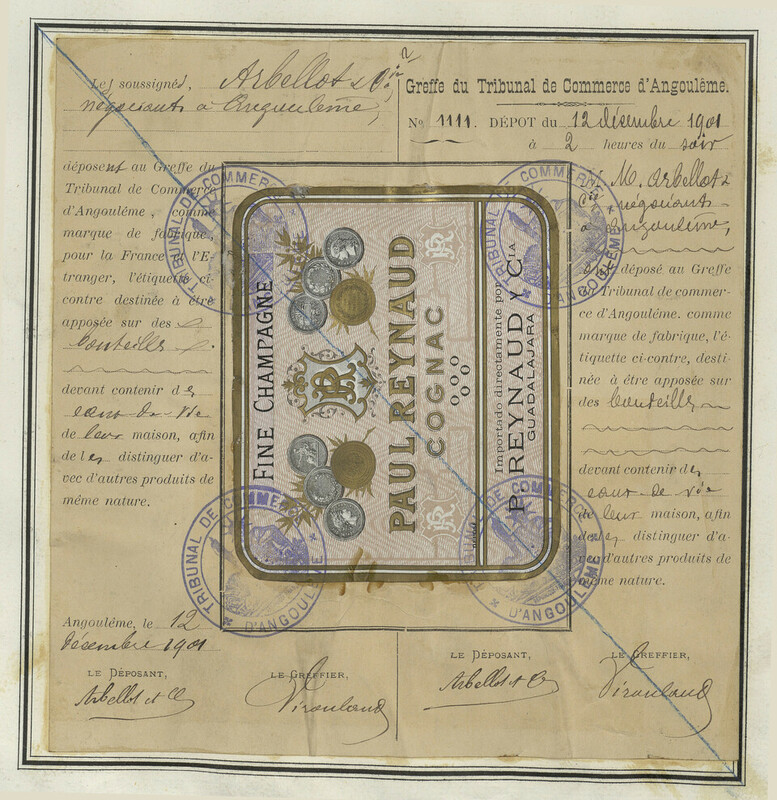 Les soussignés, Arbellot & Cie
négociants à Angoulême,
déposent au Greffe du
Tribunal de Commerce
d'Angoulême, comme
marque de fabrique,
pour la France et l'E-
tranger, l'étiquette ci-
contre destinée à être
apposée sur des
bouteilles
devant contenir des
eaux-de-vie
de leur maison, afin
de les distinguer d'a-
vec d'autres produits de
même nature.
Angoulême, le 12
décembre 1901
LE DÉPOSANT,
Arbellot et Cie
LE GREFFIER,
Greffe du Tribunal de Commerce d'Angoulême.
No 1111. DÉPOT du 12 décembre 1901
à 2 heures du soir
M. Arbellot &
Cie négociants
à Angoulême,
déposé au Greffe
du Tribunal de commer-
ce d'Angoulême. comme
marque de fabrique, l'é-
tiquette ci-contre, desti-
née à être apposée sur
des bouteilles
devant contenir des
eaux-de-vie
de leur maison, afin
de les distinguer d'a-
vec d'autres produits de
même nature.
LE DÉPOSANT,
Arbellot et Cie
LE GREFFIER,
FINE CHAMPAGNE
PR
PAUL REYNAUD
COGNAC
ooo
oo
Importado directamente por
P. REYNAUD Y CIA
GUADALAJARA
TRIBUNAL DE COMMERCE
D'ANGOULÊME
TRIBUNAL DE COMMERCE
D'ANGOULÊME
TRIBUNAL DE COMMERCE
D'ANGOULÊME
TRIBUNAL DE COMMERCE
D'ANGOULÊME